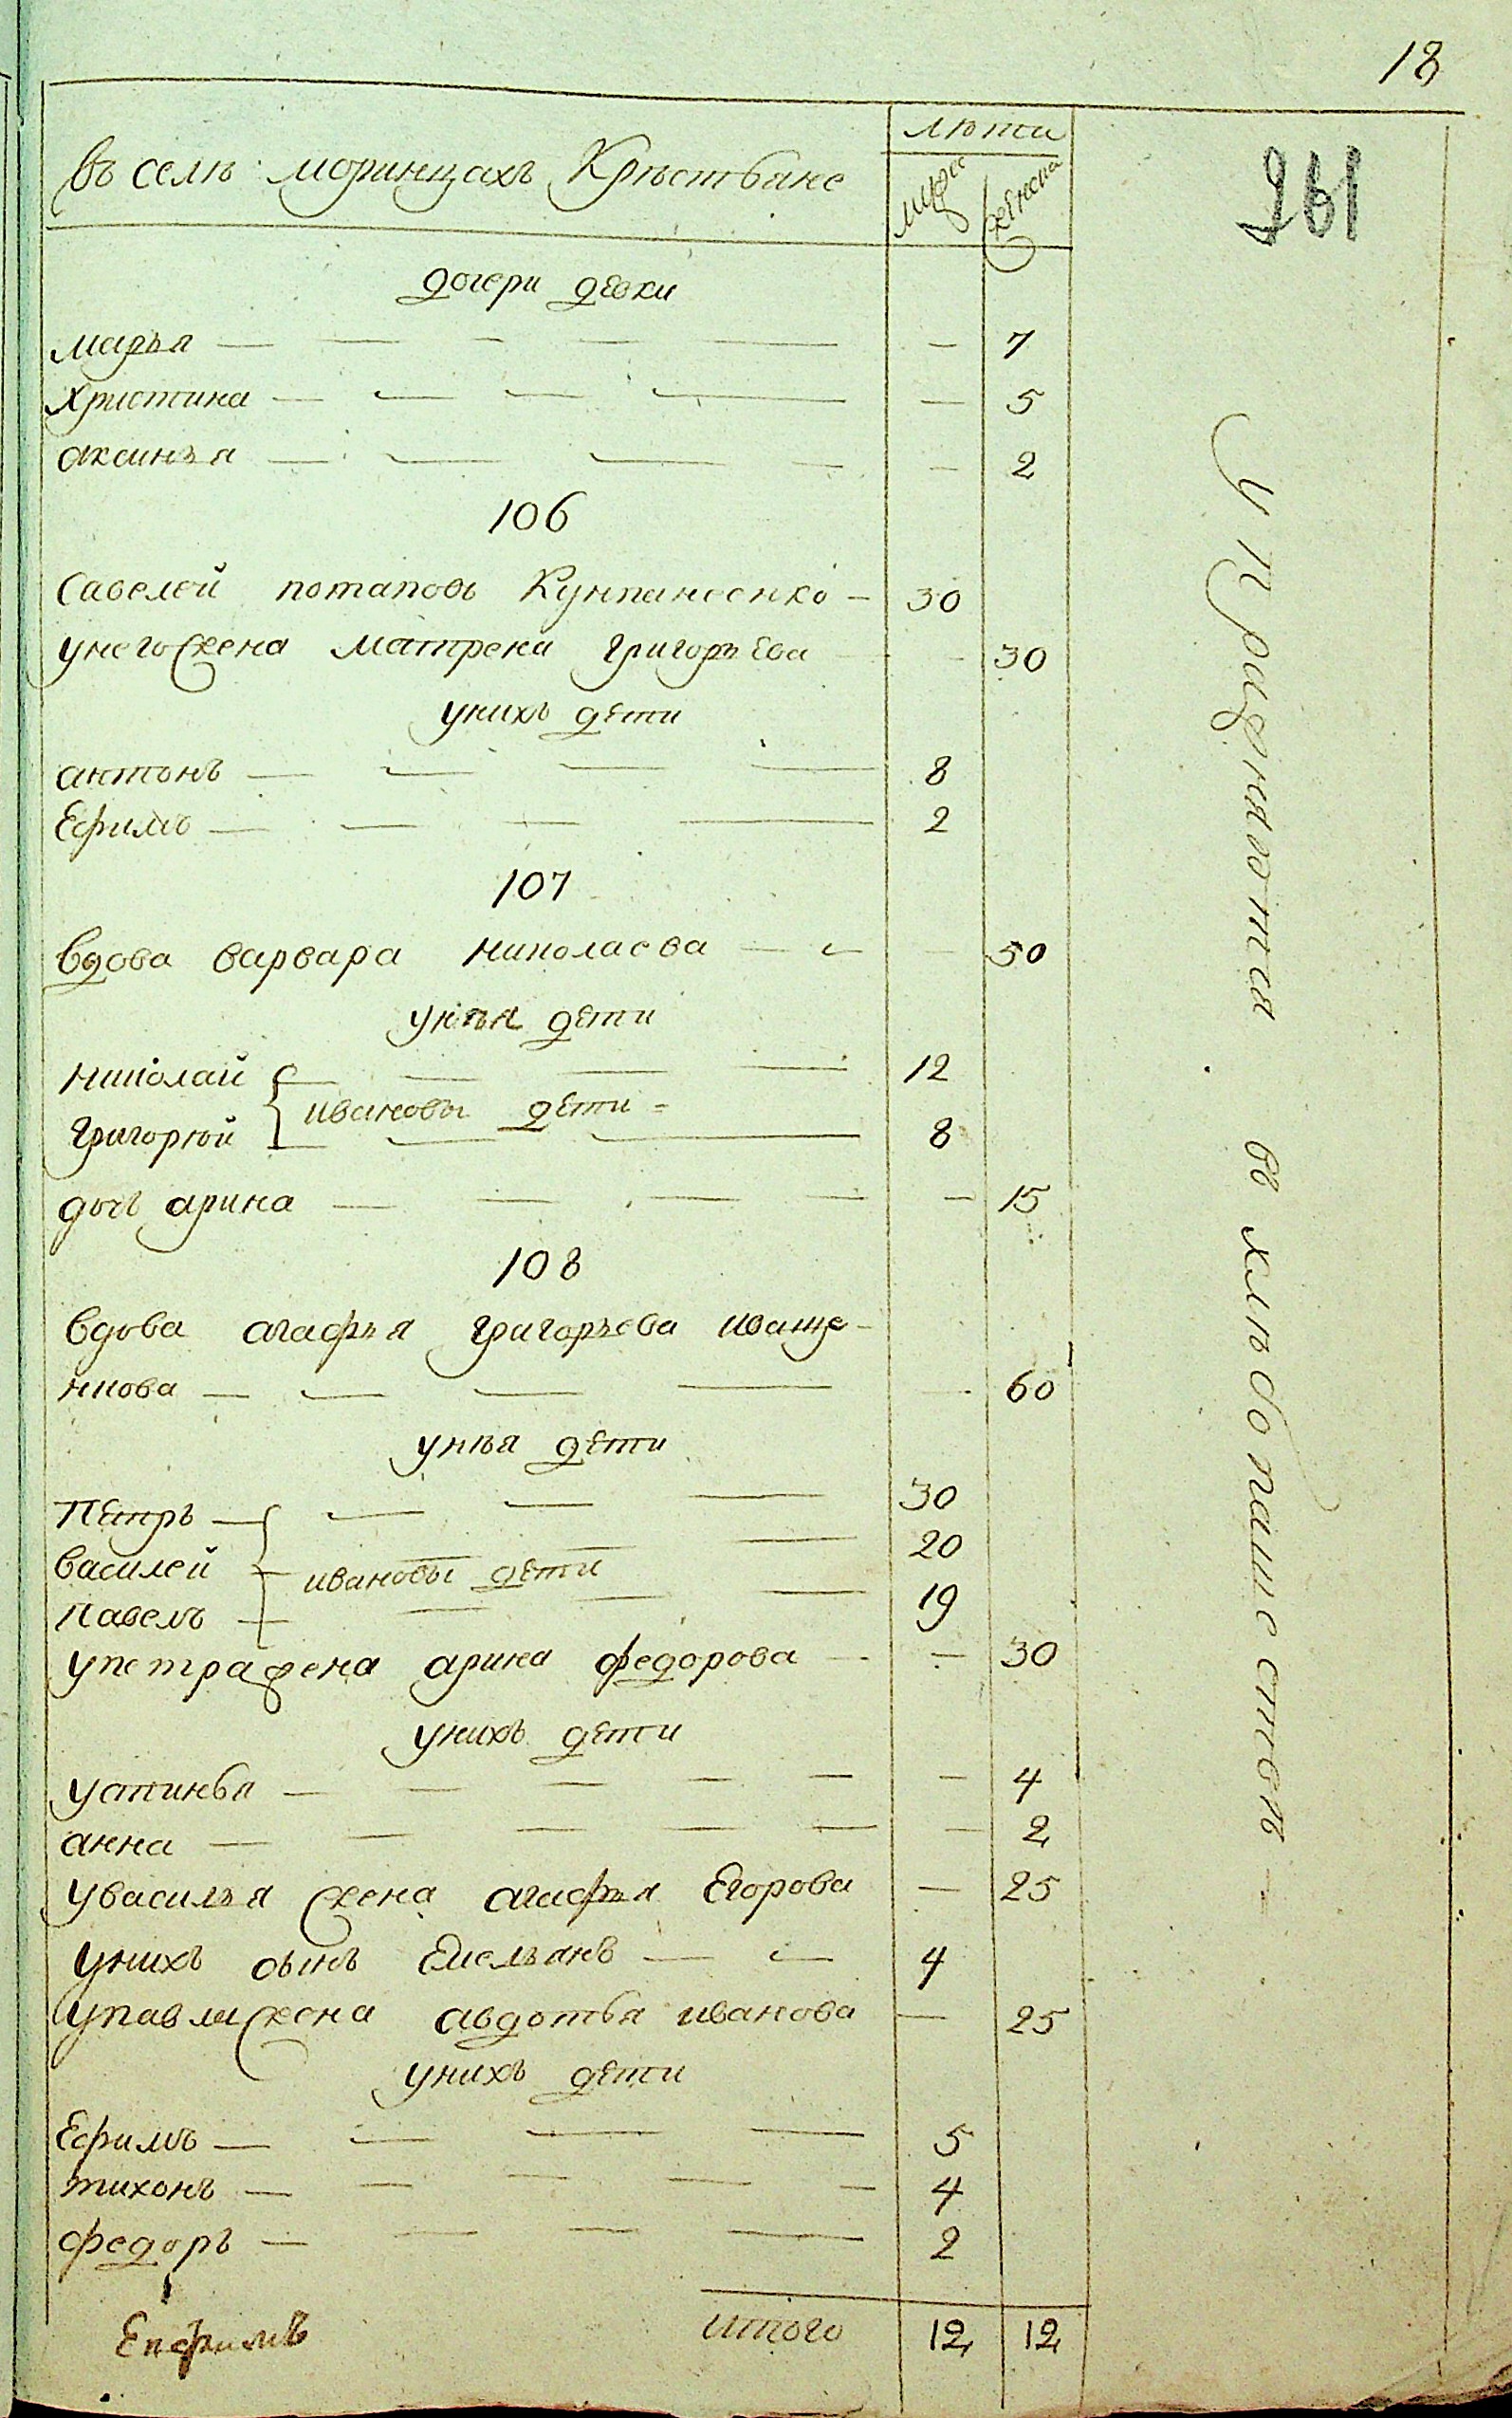 18
261
въ селѣ моринцахъ Крѣстьяне
лѣти
мужес
женска
дочери девки
марья — 7
христина — 5
аксинья — 2
106
Савелей потаповъ Кунпанеенко — 30
унего жена матрена григорьева — 30
унихъ дети
антонъ — 8
Ефимъ — 2
107
вдова варвара николаева — 50
унѣя дети
николай — 12
ивановы дети
григорюй — 8
дочь арина — 15
108
вдова агафья григорьева иваще-
нкова — 60
унѣя дети
Пётръ — 30
василей — 20
ивановы дети
павелъ — 19
упетра жена арина федорова — 30
унихъ дети
устинья — 4
анна — 2
увасилья жена агафья Егорова — 25
унихъ сынъ Емельянъ — 4
упавла жена авдотья иванова — 25
унихъ дети
Ефимъ — 5
тихонъ — 4
федоръ — 2
итого 12 12
упражняются въ хлѣбопашествѣ —